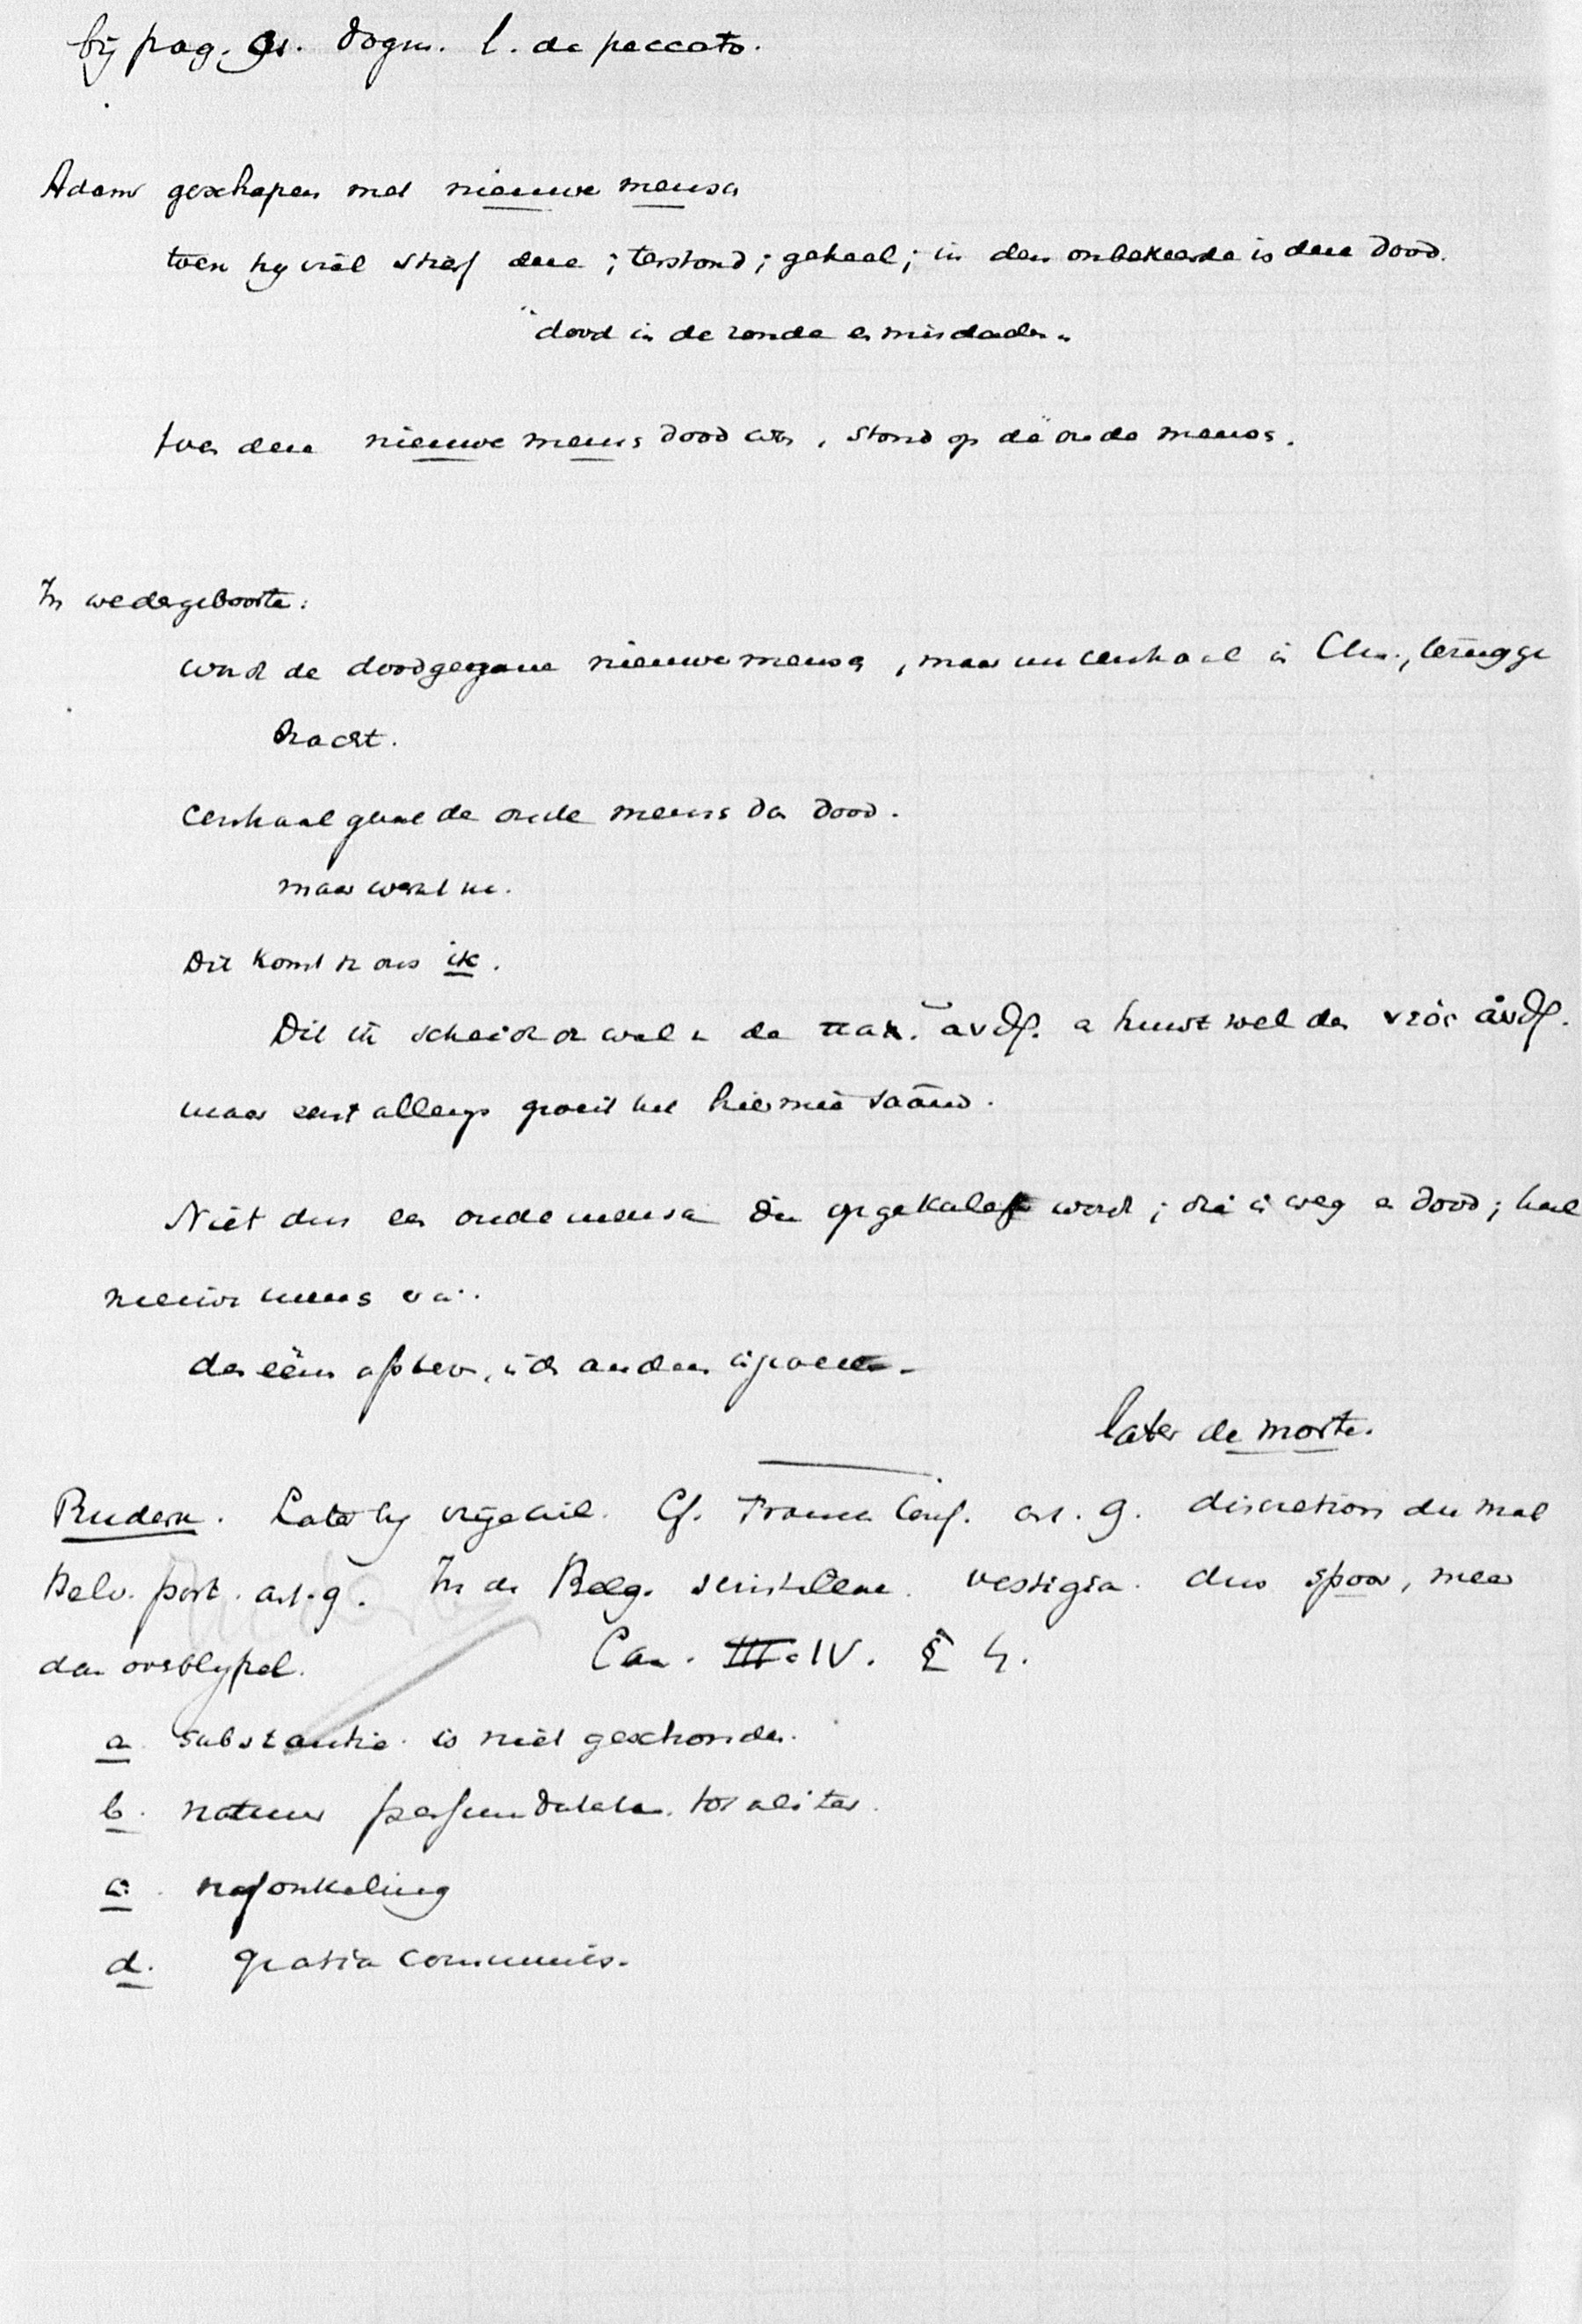 bij pag. 91. Dogm. l. de peccato.
Adam geschapen met nieuwe mensch
toen hij viel stierf deze ; terstond ; geheel ; in den onbekeerde is deze dood.
"dood in de zonde en misdaden"
toen deze nieuwe mensch dood was, stond op de oude mensch.
In wedergeboorte:
wordt de doodgegane nieuwe mensch, maar nu centraal in Chr., terugge
bracht.
Centraal gaat de oude mensch dan dood.
maar werkt na.
Dit komt in ons ik.
Dit ik scheidt zich wel van de παλ. ἀνθρ. en huwt wel den νέος ἀνθρ.
maar eerst allengs groeit het hiermee saâm.
Niet dus een oude mensch die opgekalefaterd wordt ; die is weg en dood ; het
nieuwe mensch
den één afsterven, in de anderen ingroeien
later de morte.
Rudera. Later bij vrije wil. Cf. Fransche Conf. art. 9. discretion du mal
Helv. post. art. 9. In de Belg. scintillae. vestigia. dus spoor, meer
dan overblijfsel. Can. III-IV. § 4.
a. substantie is niet geschonden.
b. natuur totaliter.
c. nafonkeling
d. gratia communis.